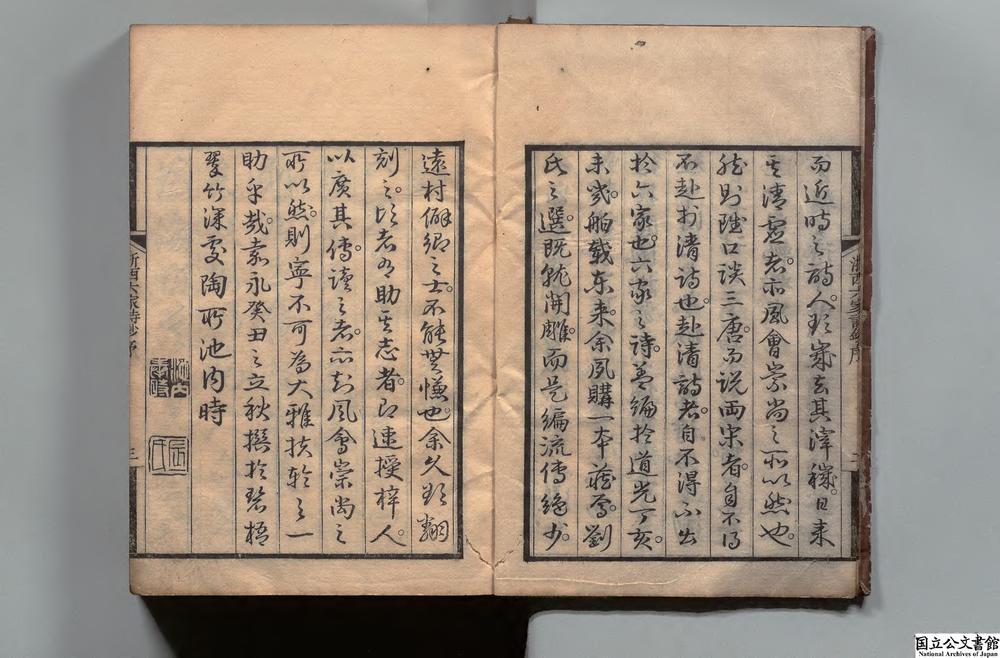 而近時之詩人。欲去其滓穢。日来
其清虚者。亦風會崇尚之所以然也。
然則雖口談三唐。而説両宋者。自不得
不赴於清詩也。赴清詩者。自不得不出
於六家也。六家之詩。蓋編於道光丁亥。
未幾。舶載東来。余夙購一本藏焉。劉
氏之選。既就開雕。而是編流傳絶少。
遠村僻郷之士。不能無慊也。余久欲翻
刻之。頃者有助其志者。即速授梓人。
以廣其傳。讀之者。亦知風會崇尚之
所以然。則寧不可為大雅扶輪之一
助乎哉。嘉永癸丑之立秋撰於碧梧
翠竹深處陶所池内時
浙西六家詩鈔序
三
国立公文書館
National Archives of Japan